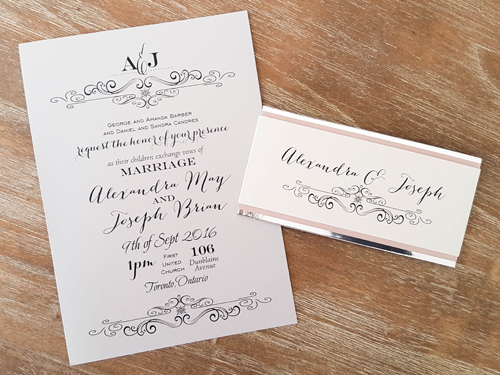 A & J
George and Amanda Barber
and Daniel and Sandra Candres
request the honor of your presence
as their children exchange vows of
MARRIAGE
Alexandra May
AND
Joseph Brian
9th of Sept 2016
1pm First United Church 106 Dunblaine Avenue
Toronto, Ontario
Alexandra & Joseph